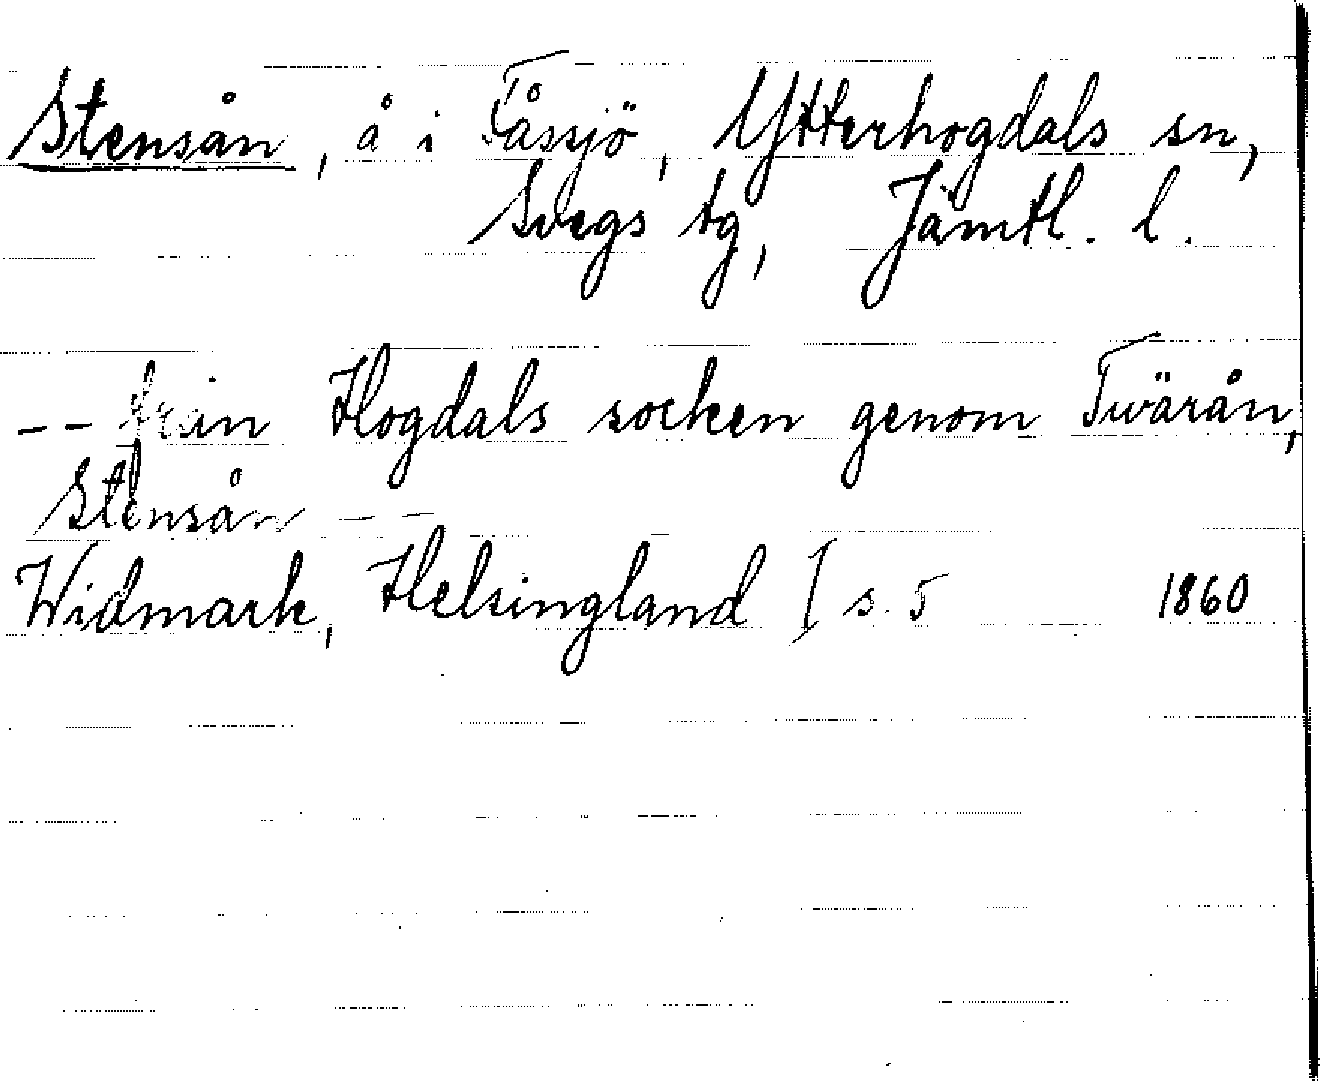 Stensån, å i Fåssjö, Ytterhogdals sn,
Svegs tg, Jämtl. l.
-- från Hogdals socken genom Twärån,
Stensån --
Widmark, Helsingland I s. 5 1860